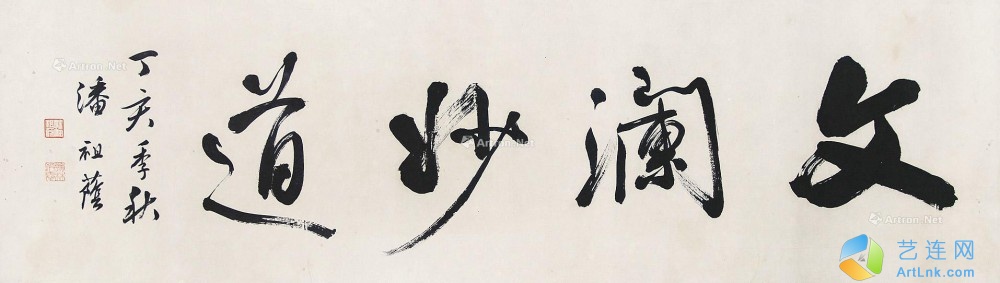 文瀾妙道
丁亥季秋
潘祖蔭
Artron.Net
Artron.Net
Artron.Net
Artron.Net
艺连网
ArtLnk.com